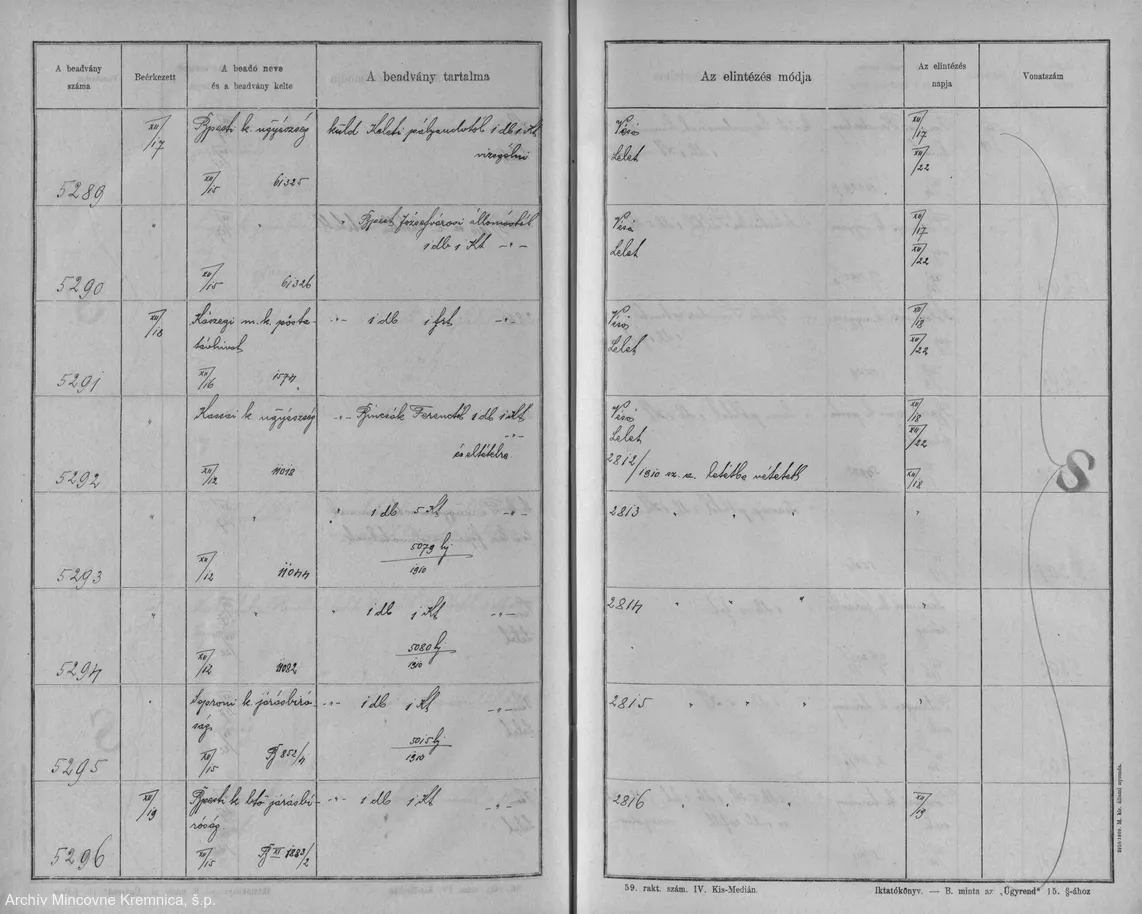 A beadvány száma
Beérkezett
A beadó neve és a beadvány kelte
A beadvány tartalma
Az elintézés módja
Az elintézés napja
Vonatszám
5289
XII/17
Bpesti k. ügyészség
XII/15 61325
küld Keleti pályaudvtól 1 db 1 Kt
vizsgálni
Vissz
Lelet
XII/17
XII/22
5290
"
"
XII/15 61326
Bpest Józsefvárosi állomástól
1 db 1 Kt -"-
Lelet
XII/17
XII/22
5291
XII/18
Kőszegi m. k. posta-
távhivat
XII/16 1574
-"- 1 db 1 frt -"-
Lelet
XII/18
XII/22
5292
"
Kassai k. ügyészség
XII/12 11018
-"- Ferencztől 1 db 1 Kt
-"-
és eltételre
Lelet
2812/1910 sz. a. letétbe vétetett
XII/18
XII/22
XII/18
5293
"
"
XII/12 11044
" 1 db 5 Kt -"-
5079 bj
1910
2813 " " "
"
5294
"
"
XII/12 11082
" 1 db 1 Kt -"-
5080 bj
1910
2814 " " "
"
5295
"
Soproni k. járásbiró-
ság
XII/15 B 852/4
-"- 1 db 1 Kt -"-
5015 bj
1910
2815 " " "
"
5296
XII/19
Bpesti k. btő járásbi-
róság
XII/15 B XI 1883/2
-"- 1 db 1 Kt -"-
2816 " " "
XII/19
S
59. rakt. szám. IV. Kis-Medián.
Iktatókönyv. — B. minta az „Ügyrend" 15. §-ához
M. kir. állami nyomda.
Archiv Mincovne Kremnica, š.p.